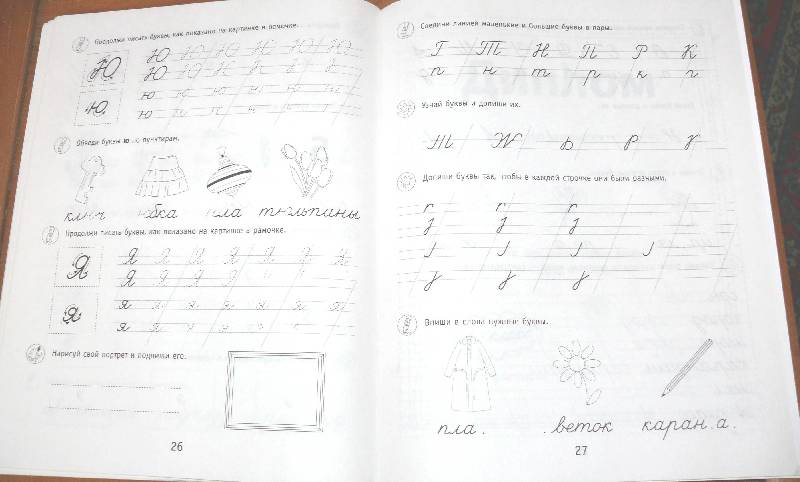 Продолжи писать буквы, как показано на картинке в рамочке.
Ю Ю Ю Ю Ю Ю Ю
Ю Ю Ю
ю ю ю ю ю ю ю
ю ю
Обведи буквы ю по пунктирам.
ключ юбка юла тюльпаны
Продолжи писать буквы, как показано на картинке в рамочке.
Я Я Я Я Я Я Я Я
Я Я Я Я Я
я я я я я я я я
я я я
Нарисуй свой портрет и подпиши его.
26
Соедини линией маленькие и большие буквы в пары.
Г Т Н П Р К
п н т р к г
Узнай буквы и допиши их.
Допиши буквы так, чтобы в каждой строчке они были разными.
Впиши в слова нужные буквы.
пла . . веток каран.а.
27